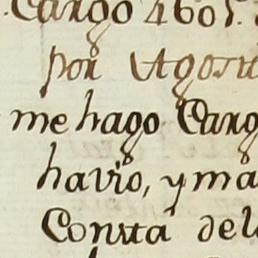 Cargo 460 r.
por Agosti
me hago Carg
havio, y ma
Consta del